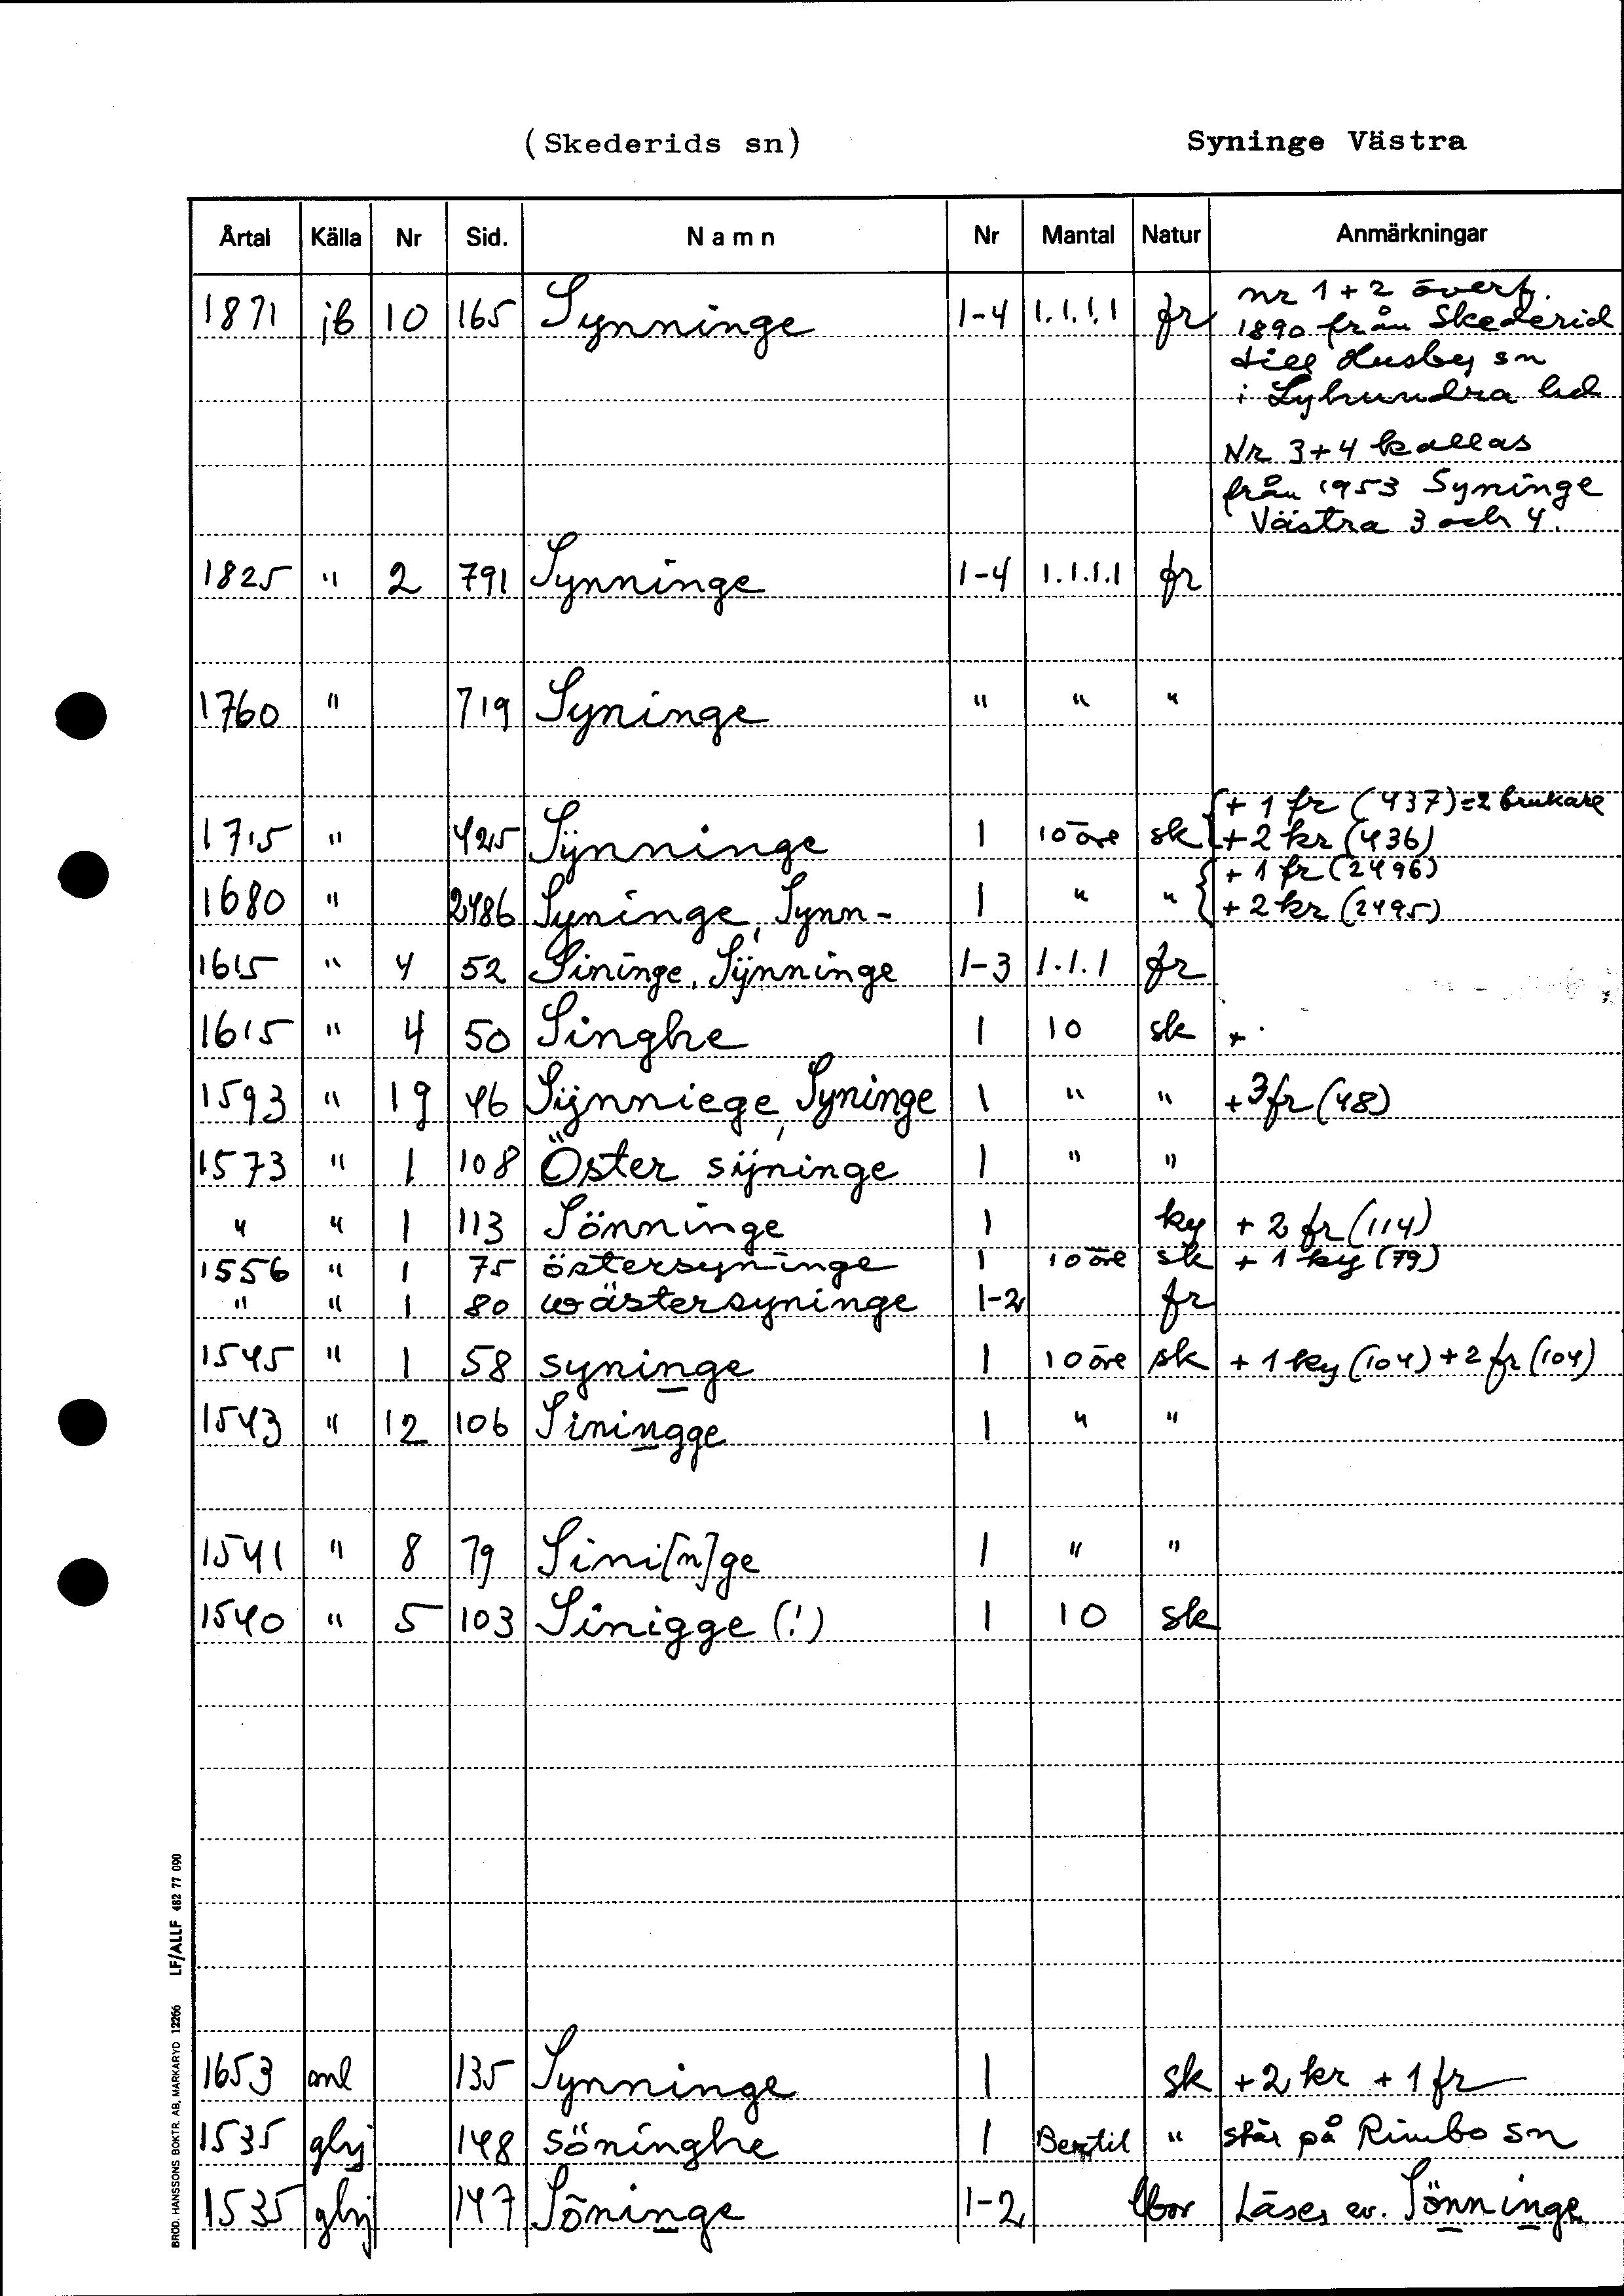 (Skederids sn) Syninge Västra
Årtal Källa Nr Sid. Namn Nr Mantal Natur Anmärkningar
1871 jb 10 165 Synninge 1-4 1.1.1.1 fr nr 1+2 överf.
1890 från Skederid
till Husby sn
i Lyhundra hd
Nr 3+4 kallas
från 1953 Syninge
Västra 3 och 4.
1825 " 2 791 Synninge 1-4 1.1.1.1 fr
1760 " 719 Syninge " " "
+ 1 fr (437)=2 brukare
1715 " 425 Sÿnninge 1 10 öre sk + 2 kr (436)
+ 1 fr (2496)
1680 " 2486 Syninge, Synn- 1 " " + 2 kr (2495)
1615 " 4 52 Sininge, Sÿnninge 1-3 1.1.1 fr
1615 " 4 50 Singhe 1 10 sk +
1593 " 19 46 Sÿnniege, Syninge 1 " " +3 fr (48)
1573 " 1 108 Öster sÿninge 1 " "
" " 1 113 Sönninge 1 ky + 2 fr (114)
1556 " 1 75 östersyninge 1 10 öre sk + 1 ky (79)
" " 1 80 wästersyninge 1-2 fr
1545 " 1 58 syninge 1 10 öre sk + 1 ky (104) + 2 fr (104)
1543 " 12 106 Siningge 1 " "
1541 " 8 79 Sini[n]ge 1 " "
1540 " 5 103 Sinigge (!) 1 10 sk
1653 ml 135 Synninge 1 sk +2 kr + 1 fr
1535 ghj 148 söninghe 1 " står på Rimbo sn
1535 ghj 147 Söninge 1-2 Läses ev. Sönninge
BRÖD. HANSSONS BOKTR. AB, MARKARYD 12266 LF/ALLF 482 77 090